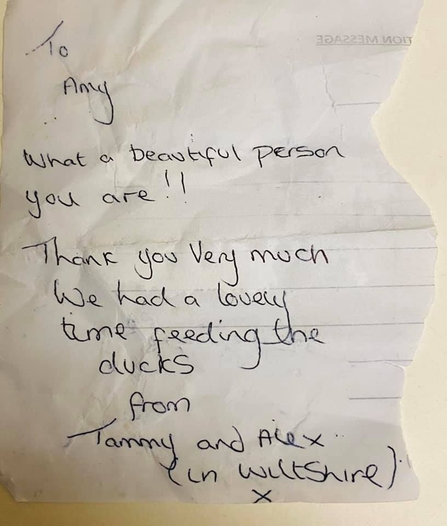 TION MESSAGE
To
Amy
What a beautiful person
you are!!
Thank you Very much
We had a lovely
time feeding the
ducks
from
Tammy and Alex
(in Wiltshire)
x